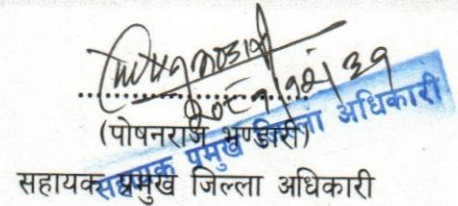 (पोषनराज भण्डारी)
सहायक प्रमुख जिल्ला अधिकारी
सहायक प्रमुख जिल्ला अधिकारी